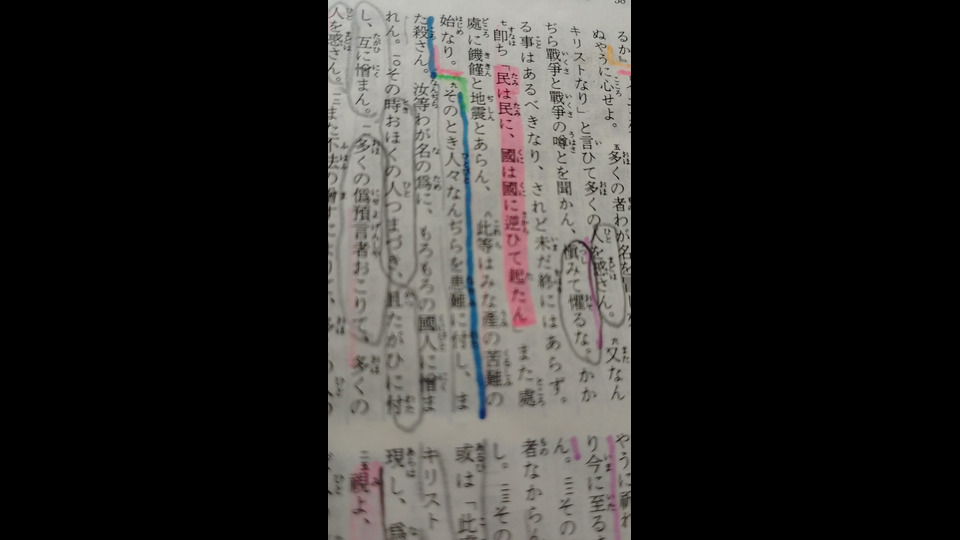 るか』
ぬやうに心せよ。 五多くの者わが名を
キリストなり」と言ひて多くの人を惑さん。 六又なん
ぢら戰爭と戰爭の噂とを聞かん、愼みて懼るな。かか
る事はあるべきなり、されど未だ終にはあらず。
七即ち「民は民に、國は國に逆ひて起たん」また處
處に饑饉と地震とあらん、 八此等はみな產の苦難の
始なり。 九そのとき人々なんぢらを患難に付し、ま
た殺さん。汝等わが名の爲に、もろもろの國人に憎ま
れん。 一〇その時おほくの人つまづき、且たがひに付
し、互に憎まん。 一一多くの僞預言者おこりて、多くの
人を惑さん。 一二また不法の增すによりて、
やうに祈れ
り今に至る
ん。 二二その
者なからん
し。 二三その
或は「此處
キリスト
現し、爲
二五視よ、